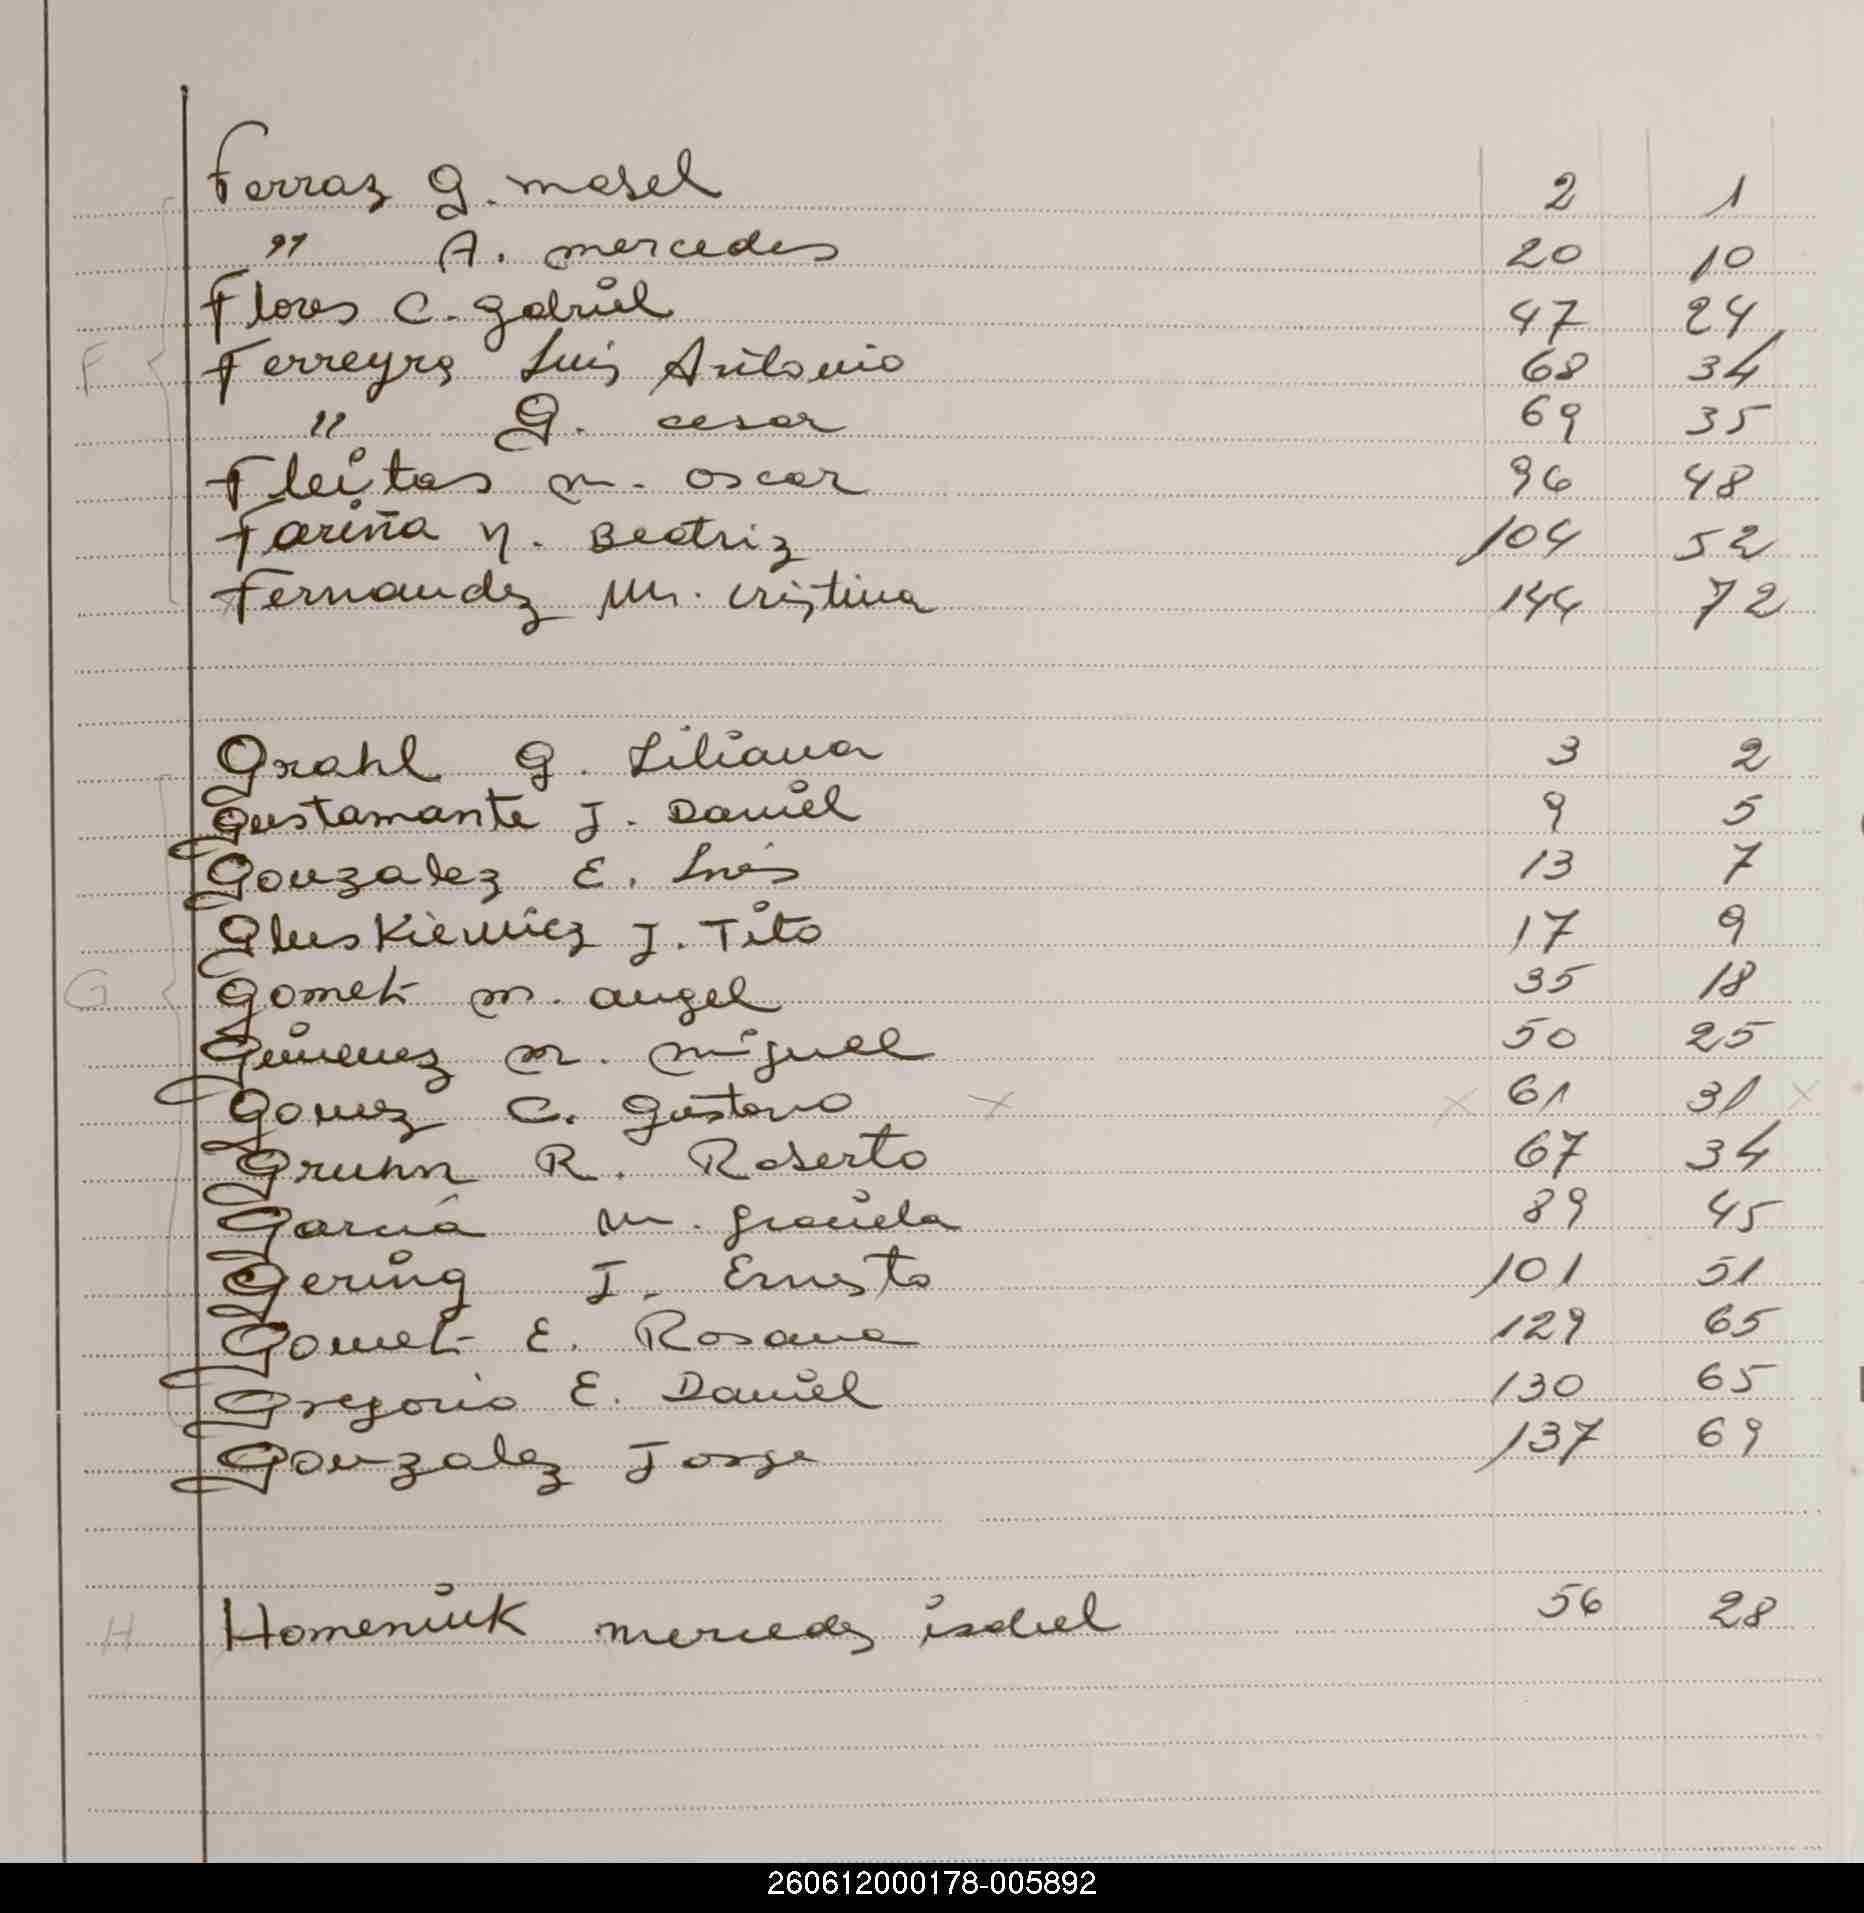 Ferraz G. mabel 2 1
" A. mercedes 20 10
Flores C. gabriel 47 24
F Ferreyra Luis Antonio 68 34
" G. cesar 69 35
Fleitas m. oscar 96 48
Fariña N. Beatriz 104 52
Fernandez M. cristina 144 72
Grahl G. Liliana 3 2
Gustamante J. Daniel 9 5
Gonzalez E. Inés 13 7
Gluskiewicz J. Tito 17 9
G Gomez m. angel 35 18
Gimenez m. miguel 50 25
Gomez C. gustavo x x 61 31 x
Gruhn R. Roberto 67 34
Garcia M. graciela 89 45
Gering J. Ernesto 101 51
Gomez E. Rosana 129 65
Gregorio E. Daniel 130 65
Gonzalez Jorge 137 69
H Homeniuk mercedes isabel 56 28
260612000178-005892